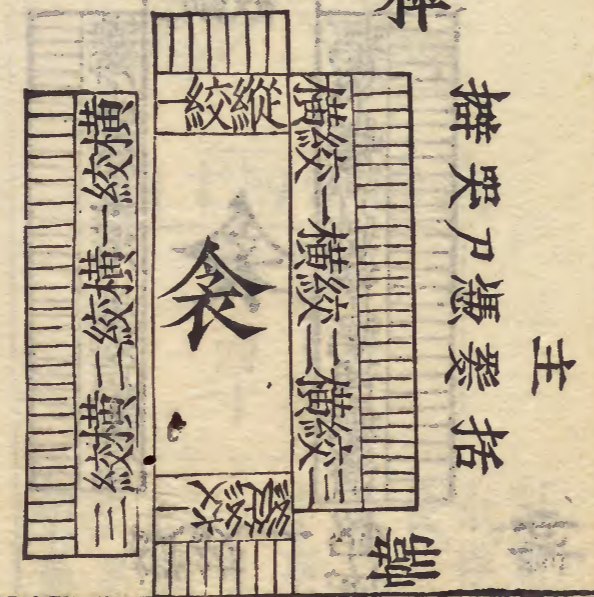 主
括髮憑尸哭擗
橫絞一橫絞二橫絞三
縱絞一
衾
縱絞一
橫絞一橫絞二橫絞三